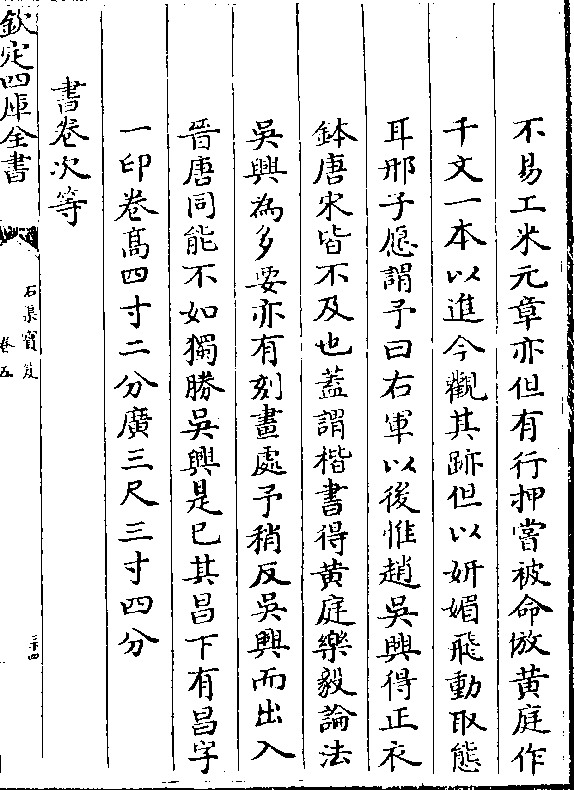 不易工米元章亦但有行押嘗被命倣黄庭作
千文一本以進今觀其跡但以妍媚飛動取態
耳邢子愿謂予曰右軍以後惟趙吳興得正衣
鉢唐宋皆不及也蓋謂楷書得黄庭樂毅論法
吳興為多要亦有刻畫處予稍反吳興而出入
晉唐同能不如獨勝吳興是已其昌下有昌字
一印卷髙四寸二分廣三尺三寸四分
書卷次等
欽定四庫全書
石渠寶笈
卷五
三十四